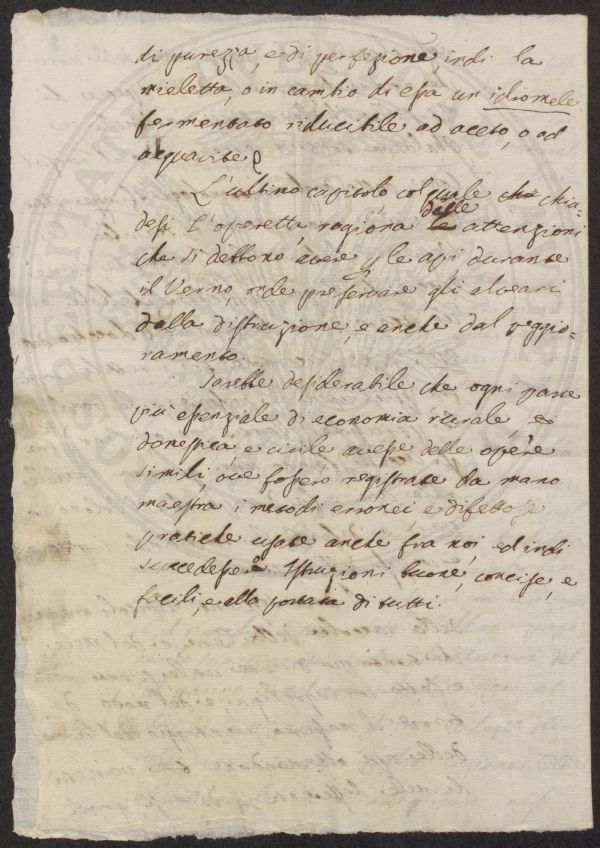 di purezza, e di perfezione, indi la
mieletta, o in cambio di essa un idromele
fermentato riducibile ad aceto, o ad
acquavite
L'ultimo capitolo col quale che chiu-
desi l'operetta, ragiona le delle attenzioni
che si debbono avere p le api durante
il Verno, onde preservare gli alveari
dalla distruzione, e anche dal peggio-
ramento.
Sarebbe desiderabile che ogni parte
più essenziale di economia rurale, e
domestica e civile avesse delle opere
simili, ove fossero registrate da mano
maestra i metodi erronei e difettosi
pratiche usate anche fra noi, ed indi
succedessero Istruzioni buone, concise, e
facili, e alla portata di tutti.